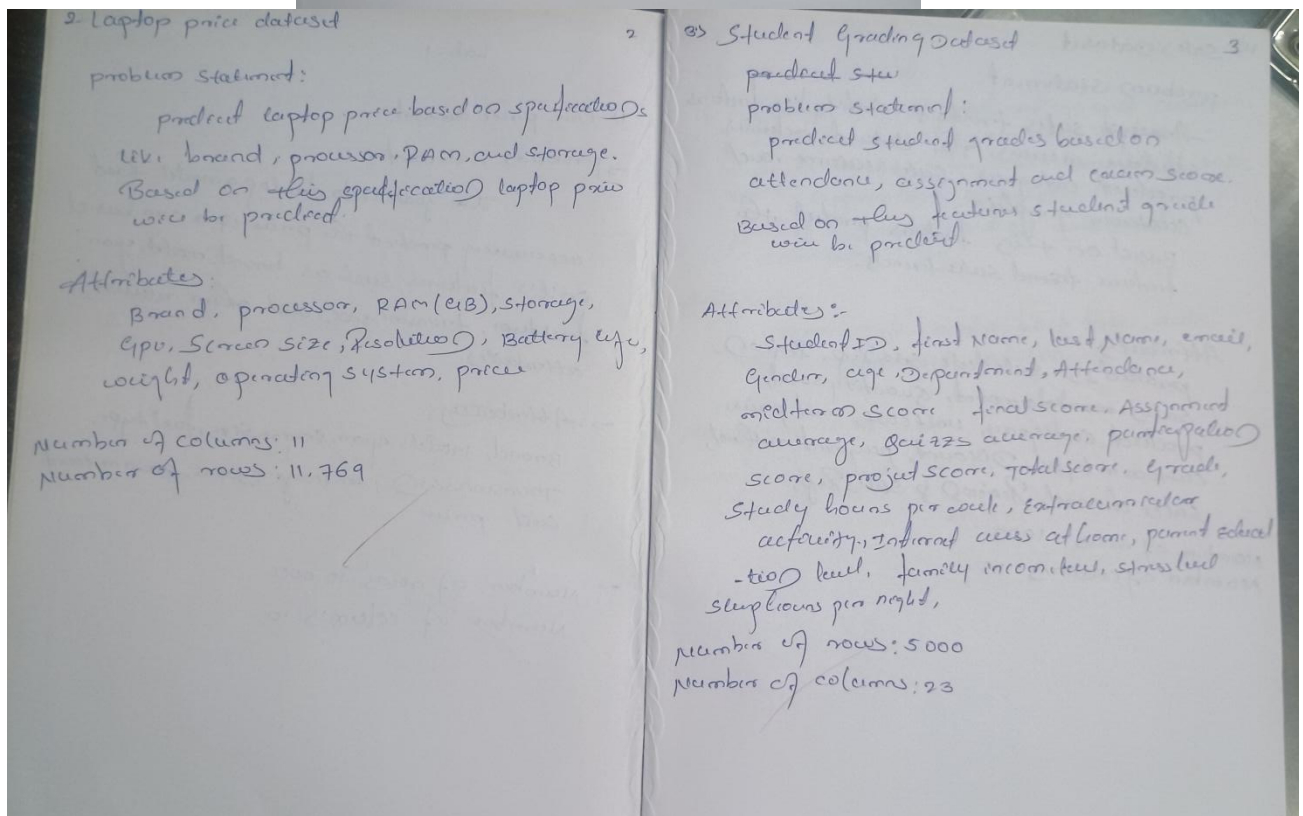 2. Laptop price dataset
2
problem statement:
predict laptop price based on specifications
like brand, processor, RAM, and storage.
Based on this specification laptop price
will be predicted.
Attributes:
Brand, processor, RAM(GB), storage,
GPU, Screen size, Resolution, Battery life,
weight, operating system, price
Number of columns: 11
Number of rows: 11,769
3) Student Grading Dataset
3
predict stu
problem statement:
predict student grades based on
attendance, assignment and exam score.
Based on this features student grade
will be predicted
Attributes:-
Student ID, first Name, last Name, email,
Gender, age, Department, Attendance,
midterm score final score, Assignment
average, Quizzs average, participation
score, project score, Total score, Grade,
Study hours per week, Extracurricular
activity, Internet access at home, parent educat
-tion level, family income level, stress level
sleep hours per night,
Number of rows: 5000
Number of columns: 23